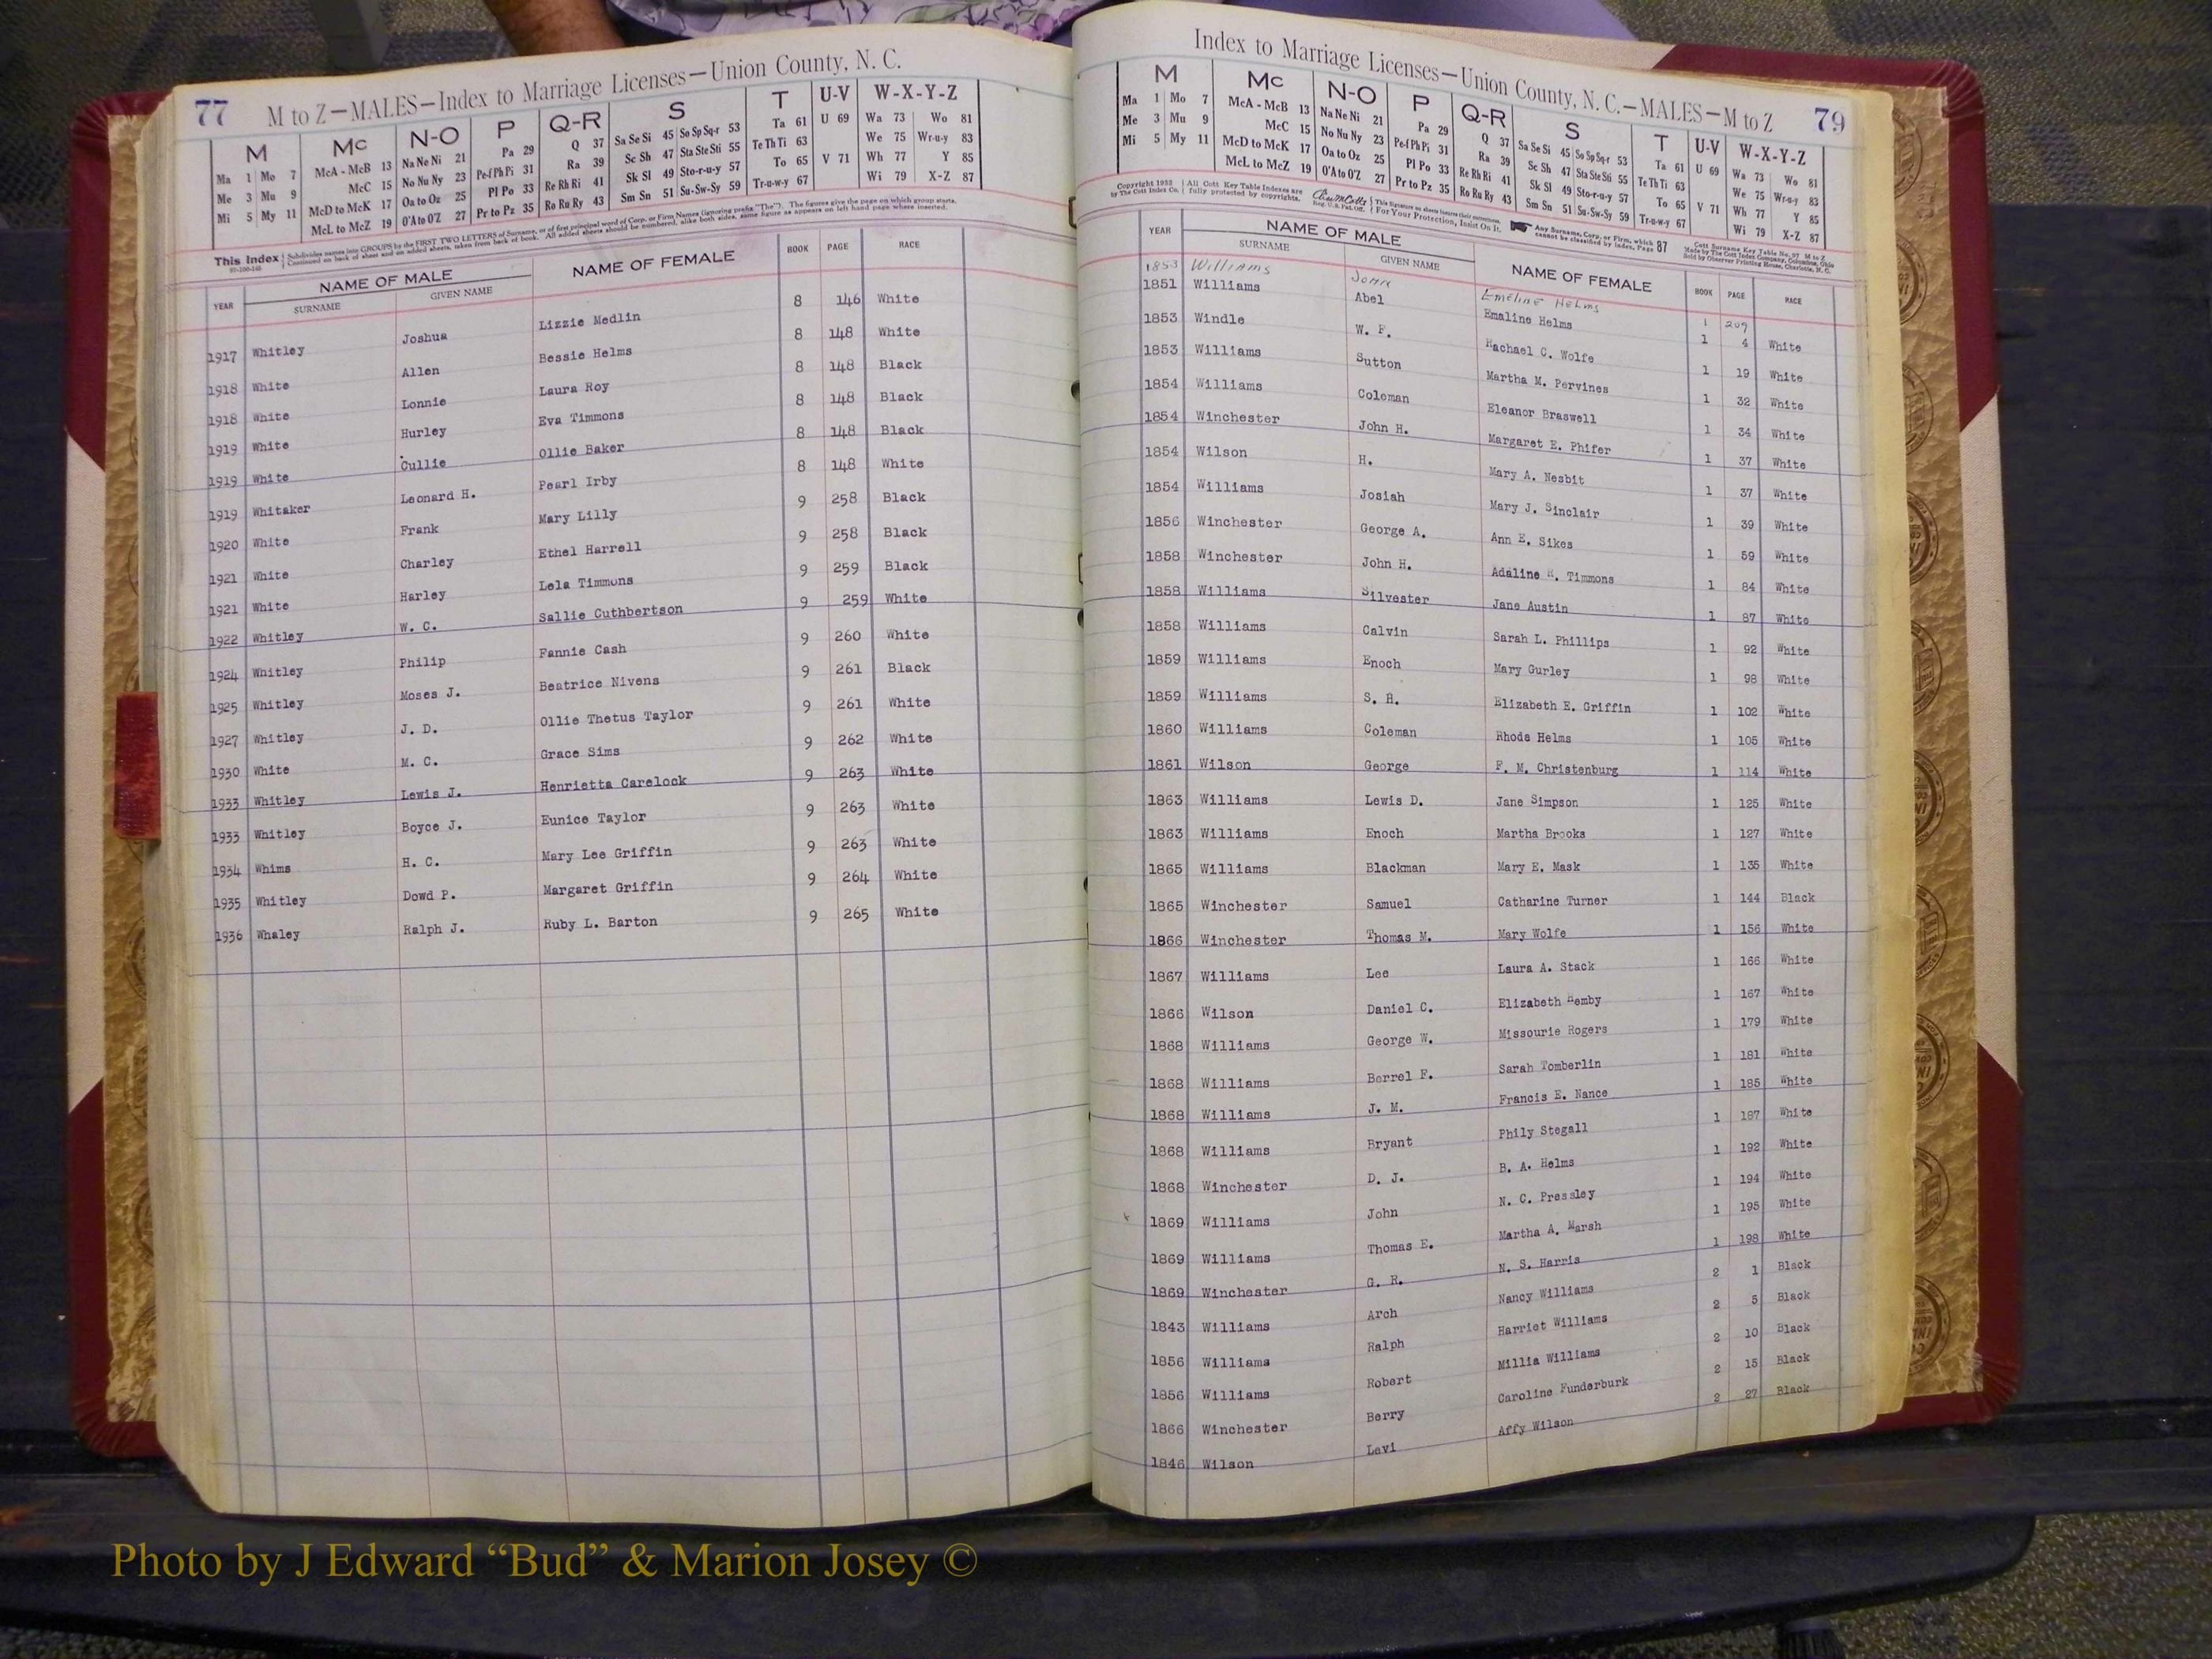 77 M to Z—MALES—Index to Marriage Licenses—Union County, N. C.
M Mc N-O P Q-R S T U-V W-X-Y-Z
Ma 1 Mo 7 McA - McB 13 Na Ne Ni 21 Pa 29 Q 37 Sa Se Si 45 So Sp Sq-r 53 Ta 61 U 69 Wa 73 Wo 81
Me 3 Mu 9 McC 15 No Nu Ny 23 Pe-f Ph Pi 31 Ra 39 Sc Sh 47 Sta Ste Sti 55 Te Th Ti 63 We 75 Wr-u-y 83
Mi 5 My 11 McD to McK 17 Oa to Oz 25 Pl Po 33 Re Rh Ri 41 Sk Sl 49 Sto-r-u-y 57 To 65 V 71 Wh 77 Y 85
McL to McZ 19 O'A to O'Z 27 Pr to Pz 35 Ro Ru Ry 43 Sm Sn 51 Su-Sw-Sy 59 Tr-u-w-y 67 Wi 79 X-Z 87
This Index Subdivides names into GROUPS by the FIRST TWO LETTERS of Surname, or of first principal word of Corp. or Firm Names (ignoring prefix "The"). The figures give the page on which group starts.
Continued on back of sheet and on added sheets, taken from back of book. All added sheets should be numbered, alike both sides, same figure as appears on left hand page where inserted.
YEAR NAME OF MALE NAME OF FEMALE BOOK PAGE RACE
SURNAME GIVEN NAME
1917 Whitley Joshua Lizzie Medlin 8 146 White
1918 White Allen Bessie Helms 8 148 White
1918 White Lonnie Laura Roy 8 148 Black
1919 White Hurley Eva Timmons 8 148 Black
1919 White Cullie Ollie Baker 8 148 Black
1919 Whitaker Leonard H. Pearl Irby 8 148 White
1920 White Frank Mary Lilly 9 258 Black
1921 White Charley Ethel Harrell 9 258 Black
1921 White Harley Lela Timmons 9 259 Black
1922 Whitley W. C. Sallie Cuthbertson 9 259 White
1924 Whitley Philip Fannie Cash 9 260 White
1925 Whitley Moses J. Beatrice Nivens 9 261 Black
1927 Whitley J. D. Ollie Thetus Taylor 9 261 White
1930 White M. C. Grace Sims 9 262 White
1933 Whitley Lewis J. Henrietta Carelock 9 263 White
1933 Whitley Boyce J. Eunice Taylor 9 263 White
1934 Whims H. C. Mary Lee Griffin 9 263 White
1935 Whitley Dowd P. Margaret Griffin 9 264 White
1936 Whaley Ralph J. Ruby L. Barton 9 265 White
Index to Marriage Licenses—Union County, N. C.—MALES—M to Z 79
M Mc N-O P Q-R S T U-V W-X-Y-Z
Ma 1 Mo 7 McA - McB 13 Na Ne Ni 21 Pa 29 Q 37 Sa Se Si 45 So Sp Sq-r 53 Ta 61 U 69 Wa 73 Wo 81
Me 3 Mu 9 McC 15 No Nu Ny 23 Pe-f Ph Pi 31 Ra 39 Sc Sh 47 Sta Ste Sti 55 Te Th Ti 63 We 75 Wr-u-y 83
Mi 5 My 11 McD to McK 17 Oa to Oz 25 Pl Po 33 Re Rh Ri 41 Sk Sl 49 Sto-r-u-y 57 To 65 V 71 Wh 77 Y 85
McL to McZ 19 O'A to O'Z 27 Pr to Pz 35 Ro Ru Ry 43 Sm Sn 51 Su-Sw-Sy 59 Tr-u-w-y 67 Wi 79 X-Z 87
Copyright 1932 by The Cott Index Co. All Cott Key Table Indexes are fully protected by copyrights. For Your Protection, Insist On It. Any Surname, Corp. or Firm, which cannot be classified by Index, Page 87
YEAR NAME OF MALE NAME OF FEMALE BOOK PAGE RACE
SURNAME GIVEN NAME
1853 Williams John Emeline Helms 1 209
1851 Williams Abel Emaline Helms 1 4 White
1853 Windle W. F. Rachael C. Wolfe 1 19 White
1853 Williams Sutton Martha M. Pervines 1 32 White
1854 Williams Coleman Eleanor Braswell 1 34 White
1854 Winchester John H. Margaret E. Phifer 1 37 White
1854 Wilson H. Mary A. Nesbit 1 37 White
1854 Williams Josiah Mary J. Sinclair 1 39 White
1856 Winchester George A. Ann E. Sikes 1 59 White
1858 Winchester John H. Adaline R. Timmons 1 84 White
1858 Williams Silvester Jane Austin 1 87 White
1858 Williams Calvin Sarah L. Phillips 1 92 White
1859 Williams Enoch Mary Gurley 1 98 White
1859 Williams S. H. Elizabeth E. Griffin 1 102 White
1860 Williams Coleman Rhode Helms 1 105 White
1861 Wilson George F. M. Christenburg 1 114 White
1863 Williams Lewis D. Jane Simpson 1 125 White
1863 Williams Enoch Martha Brooks 1 127 White
1865 Williams Blackman Mary E. Mask 1 135 White
1865 Winchester Samuel Catharine Turner 1 144 Black
1866 Winchester Thomas M. Mary Wolfe 1 156 White
1867 Williams Lee Laura A. Stack 1 166 White
1866 Wilson Daniel C. Elizabeth Hemby 1 167 White
1868 Williams George W. Missourie Rogers 1 179 White
1868 Williams Berrel F. Sarah Tomberlin 1 181 White
1868 Williams J. M. Francis E. Nance 1 185 White
1868 Williams Bryant Phily Stegall 1 187 White
1868 Winchester D. J. B. A. Helms 1 192 White
1869 Williams John N. C. Pressley 1 194 White
1869 Williams Thomas E. Martha A. Marsh 1 195 White
1869 Winchester G. R. N. S. Harris 1 198 White
1843 Williams Arch Nancy Williams 2 1 Black
1856 Williams Ralph Harriet Williams 2 5 Black
1856 Williams Robert Millia Williams 2 10 Black
1866 Winchester Berry Caroline Funderburk 2 15 Black
1846 Wilson Levi Affy Wilson 2 27 Black
Photo by J Edward “Bud” & Marion Josey ©